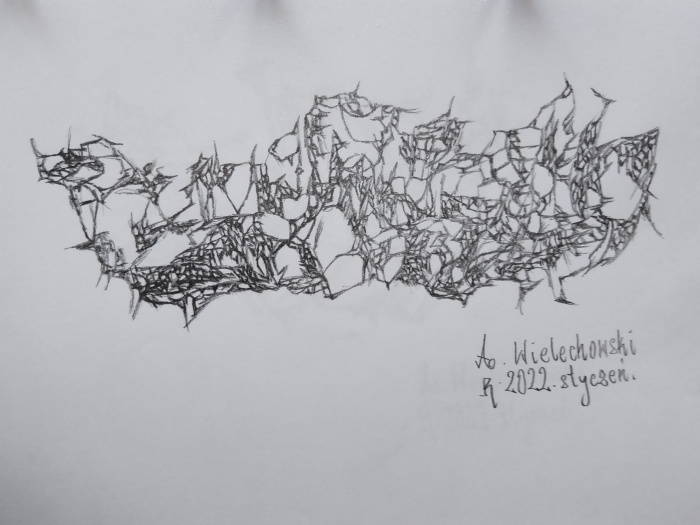 A. Wielechowski
R. 2022. styczeń.